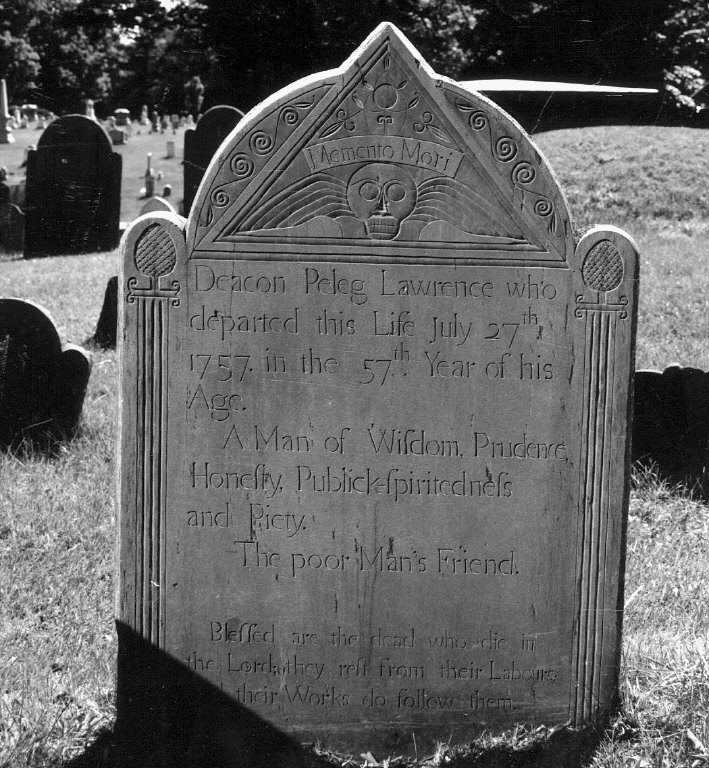 Memento Mori
Deacon Peleg Lawrence who
departed this Life July 27th
1757. in the 57th. Year of his
Age.
A Man of Wiſdom, Prudence,
Honeſty, Publick-ſpiritedneſs
and Piety.
The poor Man's Friend.
Bleſſed are the dead who die in
the Lord; they reſt from their Labours,
their Works do follow them.